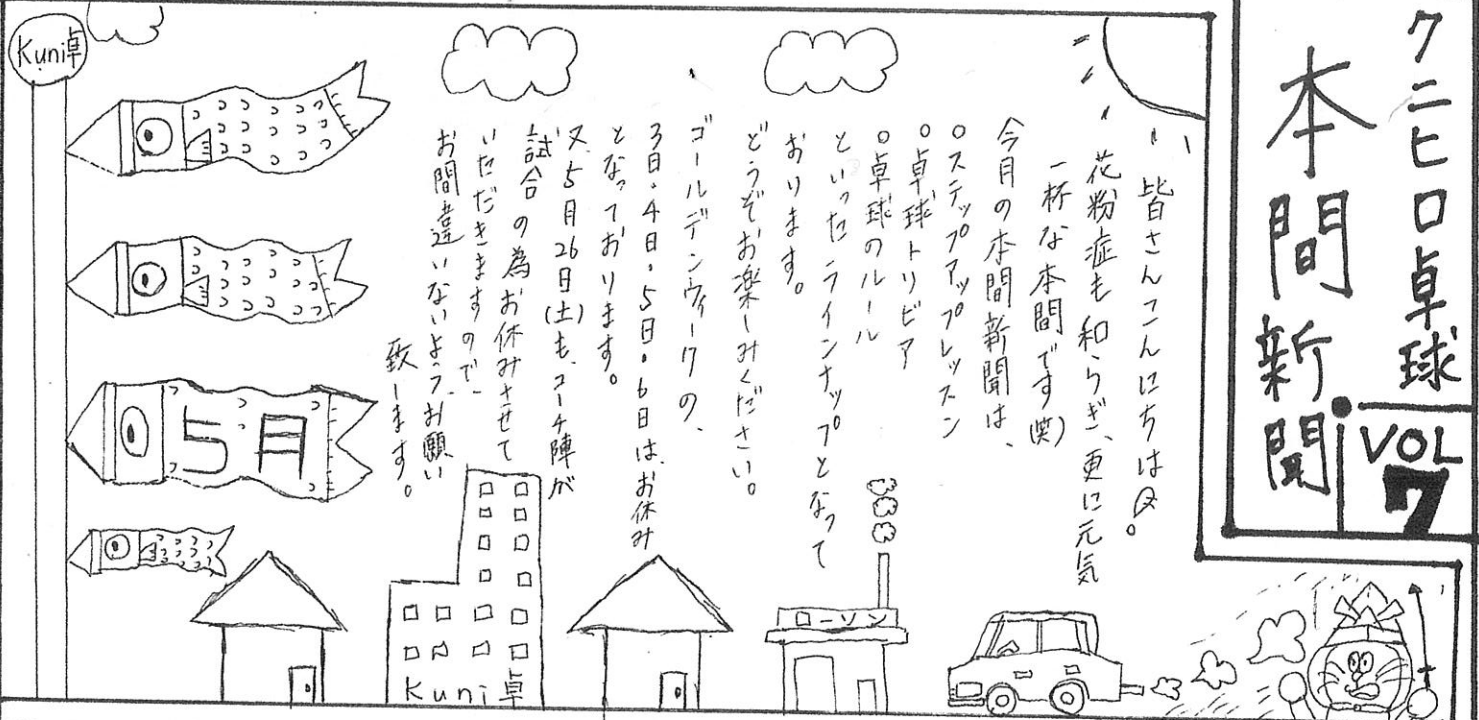 クニヒロ卓球
本間新聞
VOL
7
皆さんこんにちは
花粉症も和らぎ、更に元気
一杯な本間です(笑)
今月の本間新聞は、
○ステップアップレッスン
○卓球トリビア
○卓球のルール
といったラインナップとなって
おります。
どうぞお楽しみください。
ゴールデンウィークの、
3日・4日・5日・6日は、お休み
となっております。
又、5月26日(土)も、コーチ陣が
試合の為お休みさせて
いただきますので、
お間違いないよう、お願い
致します。
Kuni卓
5月
Kuni卓
ローソン